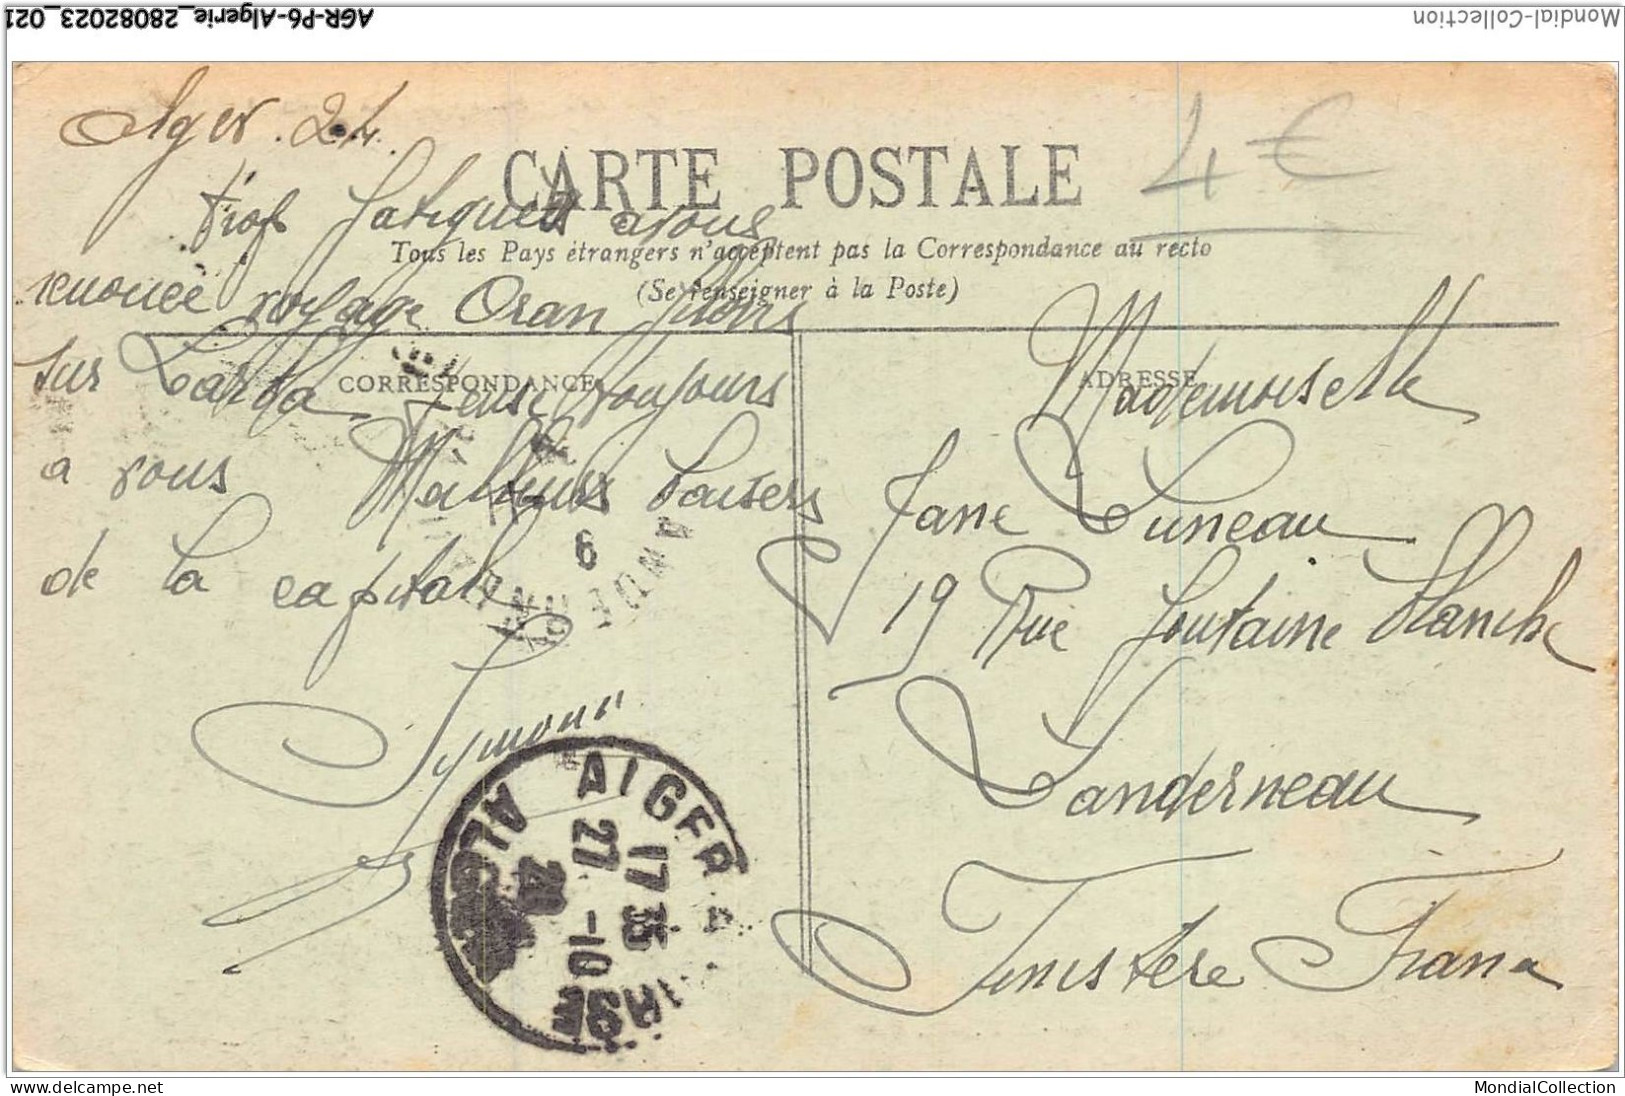 AGR-P6-Algerie_28082023_021
Mondial-Collection
Alger. 24.
4 €
CARTE POSTALE
Tous les Pays étrangers n'acceptent pas la Correspondance au recto
(Se renseigner à la Poste)
CORRESPONDANCE
ADRESSE
trop fatigués avons
renoncé voyage Oran filons
sur Larba pense toujours
a vous Meilleurs baisers
de la capitale
Symonne
Mademoiselle
Jane Luneau
19 Rue Fontaine Blanche
Landerneau
Finistère France
6
ALGER
17 35
27 -10
20
ALGER
www.delcampe.net
MondialCollection